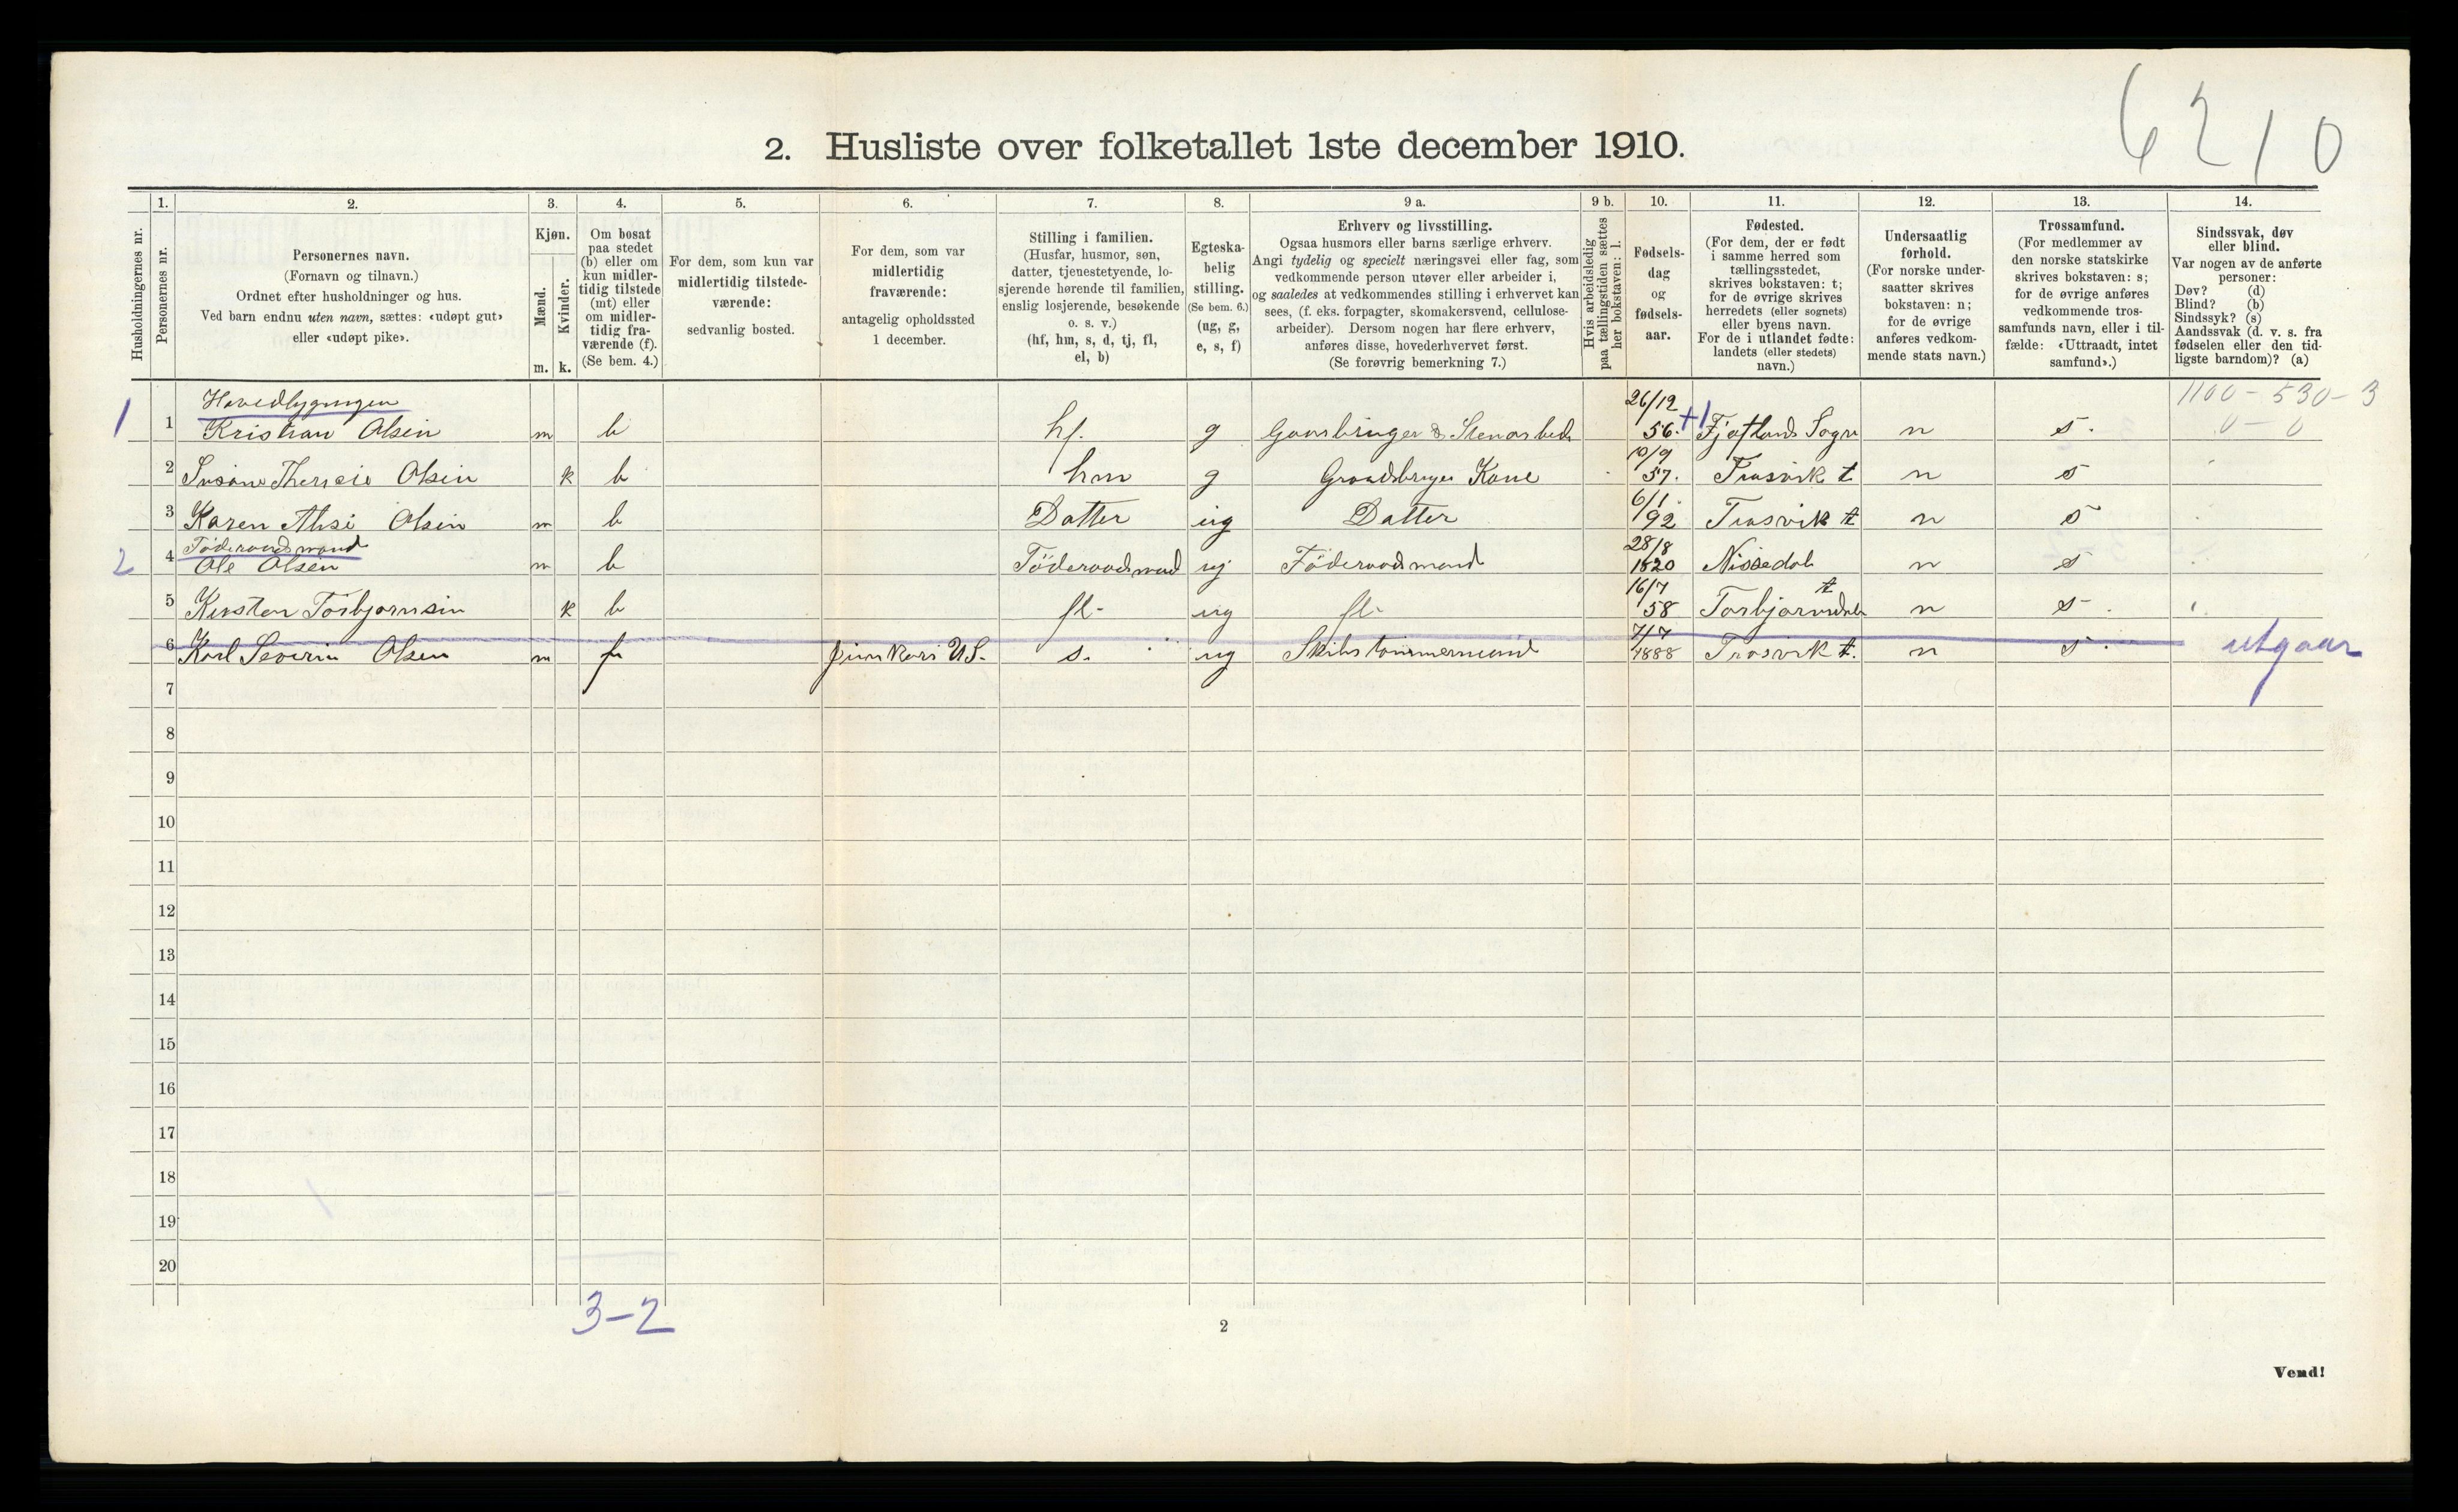 6210
2. Husliste over folketallet 1ste december 1910.
1. 2. 3. 4. 5. 6. 7. 8. 9 a. 9 b. 10. 11. 12. 13. 14.
Husholdningernes nr.
Personernes nr.
Personernes navn.
(Fornavn og tilnavn.)
Ordnet efter husholdninger og hus.
Ved barn endnu uten navn, sættes: «udøpt gut»
eller «udøpt pike».
Kjøn.
Mænd.
Kvinder.
m. k.
Om bosat
paa stedet
(b) eller om
kun midler-
tidig tilstede
(mt) eller
om midler-
tidig fra-
værende (f).
(Se bem. 4.)
For dem, som kun var
midlertidig tilstede-
værende:
sedvanlig bosted.
For dem, som var
midlertidig
fraværende:
antagelig opholdssted
1 december.
Stilling i familien.
(Husfar, husmor, søn,
datter, tjenestetyende, lo-
sjerende hørende til familien,
enslig losjerende, besøkende
o. s. v.)
(hf, hm, s, d, tj, fl,
el, b)
Egteska-
belig
stilling.
(Se bem. 6.)
(ug, g,
e, s, f)
Erhverv og livsstilling.
Ogsaa husmors eller barns særlige erhverv.
Angi tydelig og specielt næringsvei eller fag, som
vedkommende person utøver eller arbeider i,
og saaledes at vedkommendes stilling i erhvervet kan
sees, (f. eks. forpagter, skomakersvend, cellulose-
arbeider). Dersom nogen har flere erhverv,
anføres disse, hovederhvervet først.
(Se forøvrig bemerkning 7.)
Hvis arbeidsledig
paa tællingstiden sættes
her bokstaven: l.
Fødsels-
dag
og
fødsels-
aar.
Fødested.
(For dem, der er født
i samme herred som
tællingsstedet,
skrives bokstaven: t;
for de øvrige skrives
herredets (eller sognets)
eller byens navn.
For de i utlandet fødte:
landets (eller stedets)
navn.)
Undersaatlig
forhold.
(For norske under-
saatter skrives
bokstaven: n;
for de øvrige
anføres vedkom-
mende stats navn.)
Trossamfund.
(For medlemmer av
den norske statskirke
skrives bokstaven: s;
for de øvrige anføres
vedkommende tros-
samfunds navn, eller i til-
fælde: «Uttraadt, intet
samfund».)
Sindssvak, døv
eller blind.
Var nogen av de anførte
personer:
Døv? (d)
Blind? (b)
Sindssyk? (s)
Aandssvak (d. v. s. fra
fødselen eller den tid-
ligste barndom)? (a)
Hovedbygningen 26/12 1100 - 530 - 3
1 1 Kristian Olsen m b hf. g Gaardbruger & Stenarbeid 56. +1 Fjotland Sogn n s. 0 - 0
10/9
2 Olsen k b hm g Kone 57. t n s
6/1
3 Karen Olsen m b Datter ug Datter 92 t n s
Föderaadsmand 28/8
2 4 Ole Olsen m b Föderaadsmand ug Föderaadsmand 1820 Nissedal n s
16/7 t
5 Torbjornsen k b fl- ug fl- 58 n s
7/7
6 Karl Severin Olsen m f U.S. s. ug Skibstømmermand 1888 t. n s utgaar
7
8
9
10
11
12
13
14
15
16
17
18
19
20
3-2
2
Vend!